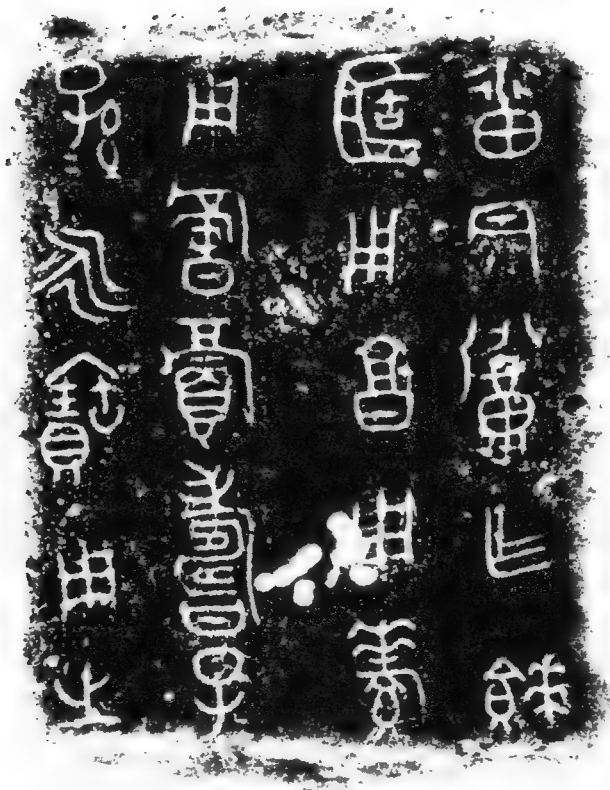 番君召乍餴
𠤳用亯用孝
用祈眉壽子
孫永寶用之